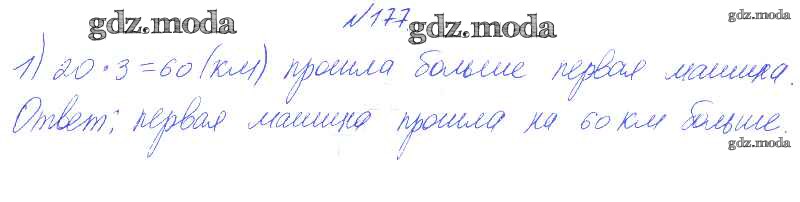 №177.
gdz.moda gdz.moda gdz.moda
1) 20 · 3 = 60 (км) прошла больше первая машина.
Ответ: первая машина прошла на 60 км больше.
gdz.moda gdz.moda gdz.moda